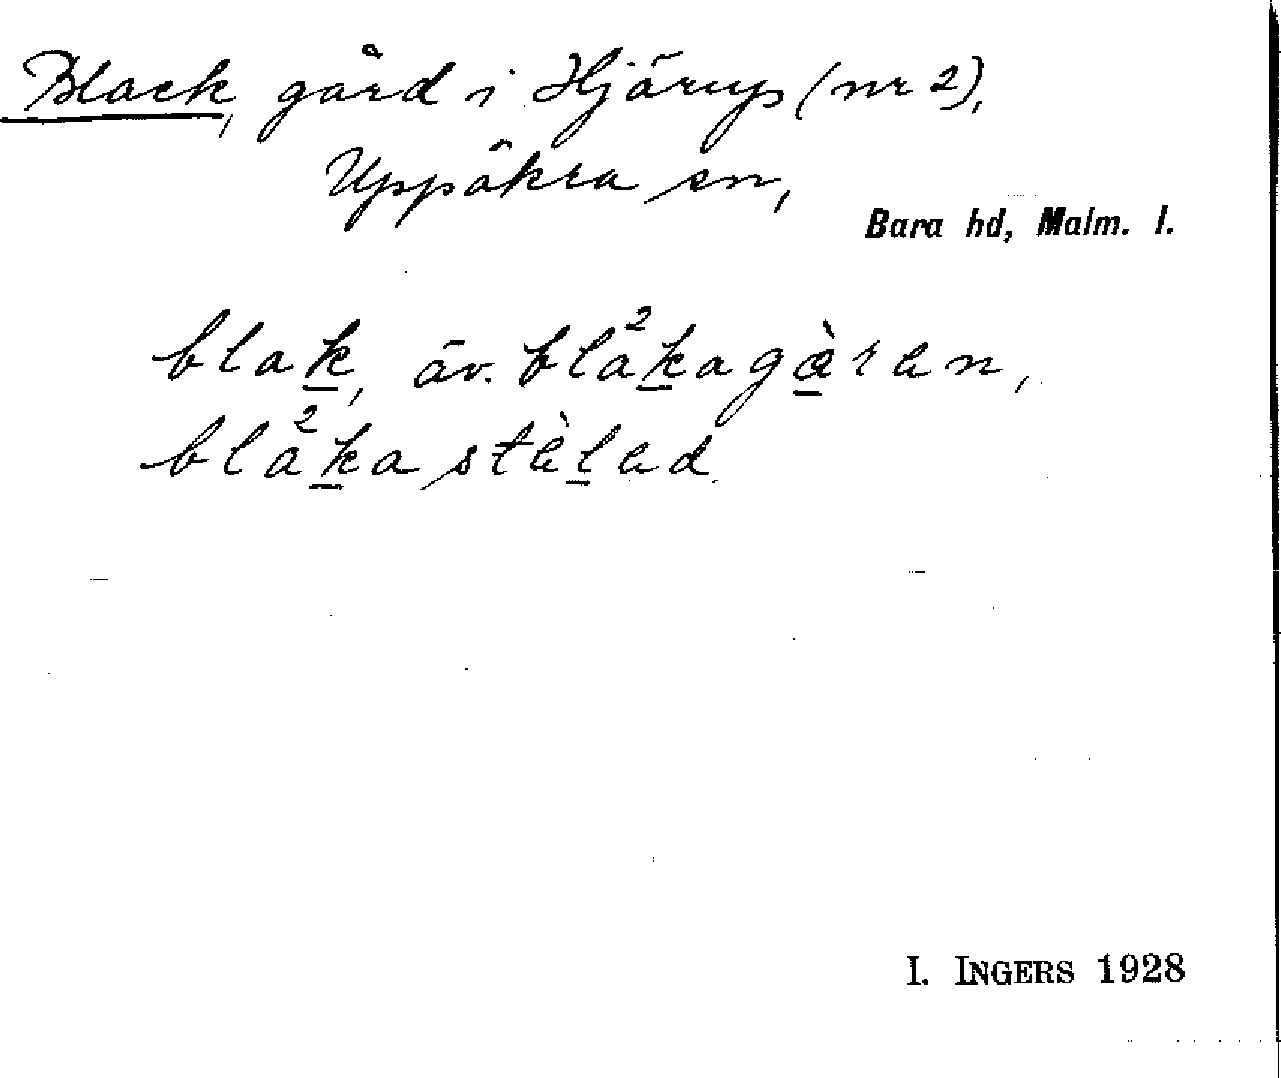 Black, gård i Hjärup (nr 2),
Uppåkra sn,
Bara hd, Malm. l.
blak, äv. blá²kagàran,
blá²kastèlad.
I. INGERS 1928